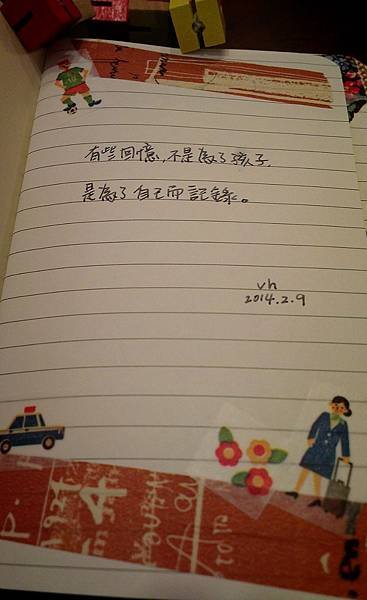 有些回憶，不是為了孩子，
是為了自己而記錄。
vh
2014.2.9